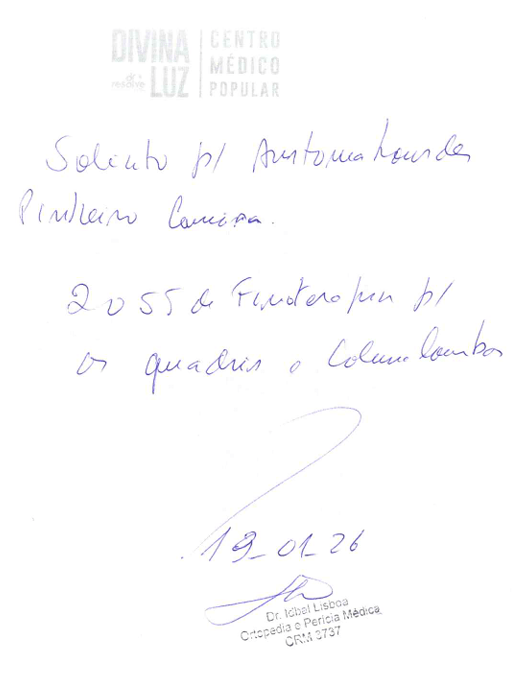 DIVINA LUZ
dr resolve
CENTRO MÉDICO POPULAR
Solicito p/ Lourdes
Pinheiro
20 SS de Fisioterapia p/
os quadris e Coluna lombar
19-01-26
Dr. Idbal Lisboa
Ortopedia e Perícia Médica
CRM 3737